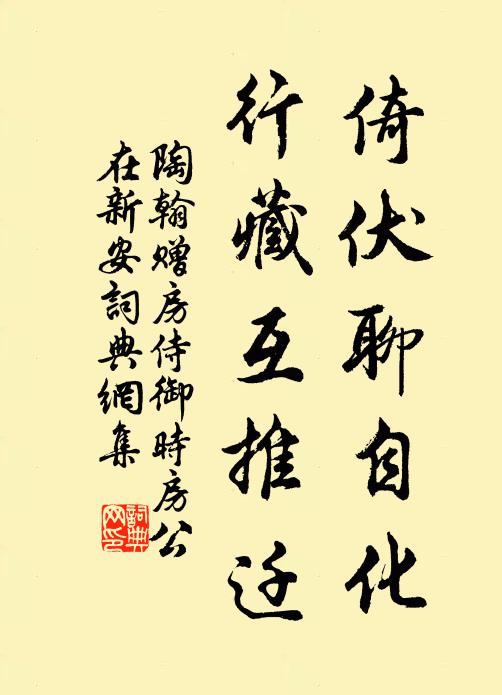 倚伏聊自化
行藏互推迁
陶翰赠房侍御時房公
在新安詞典網集
詞典
网印